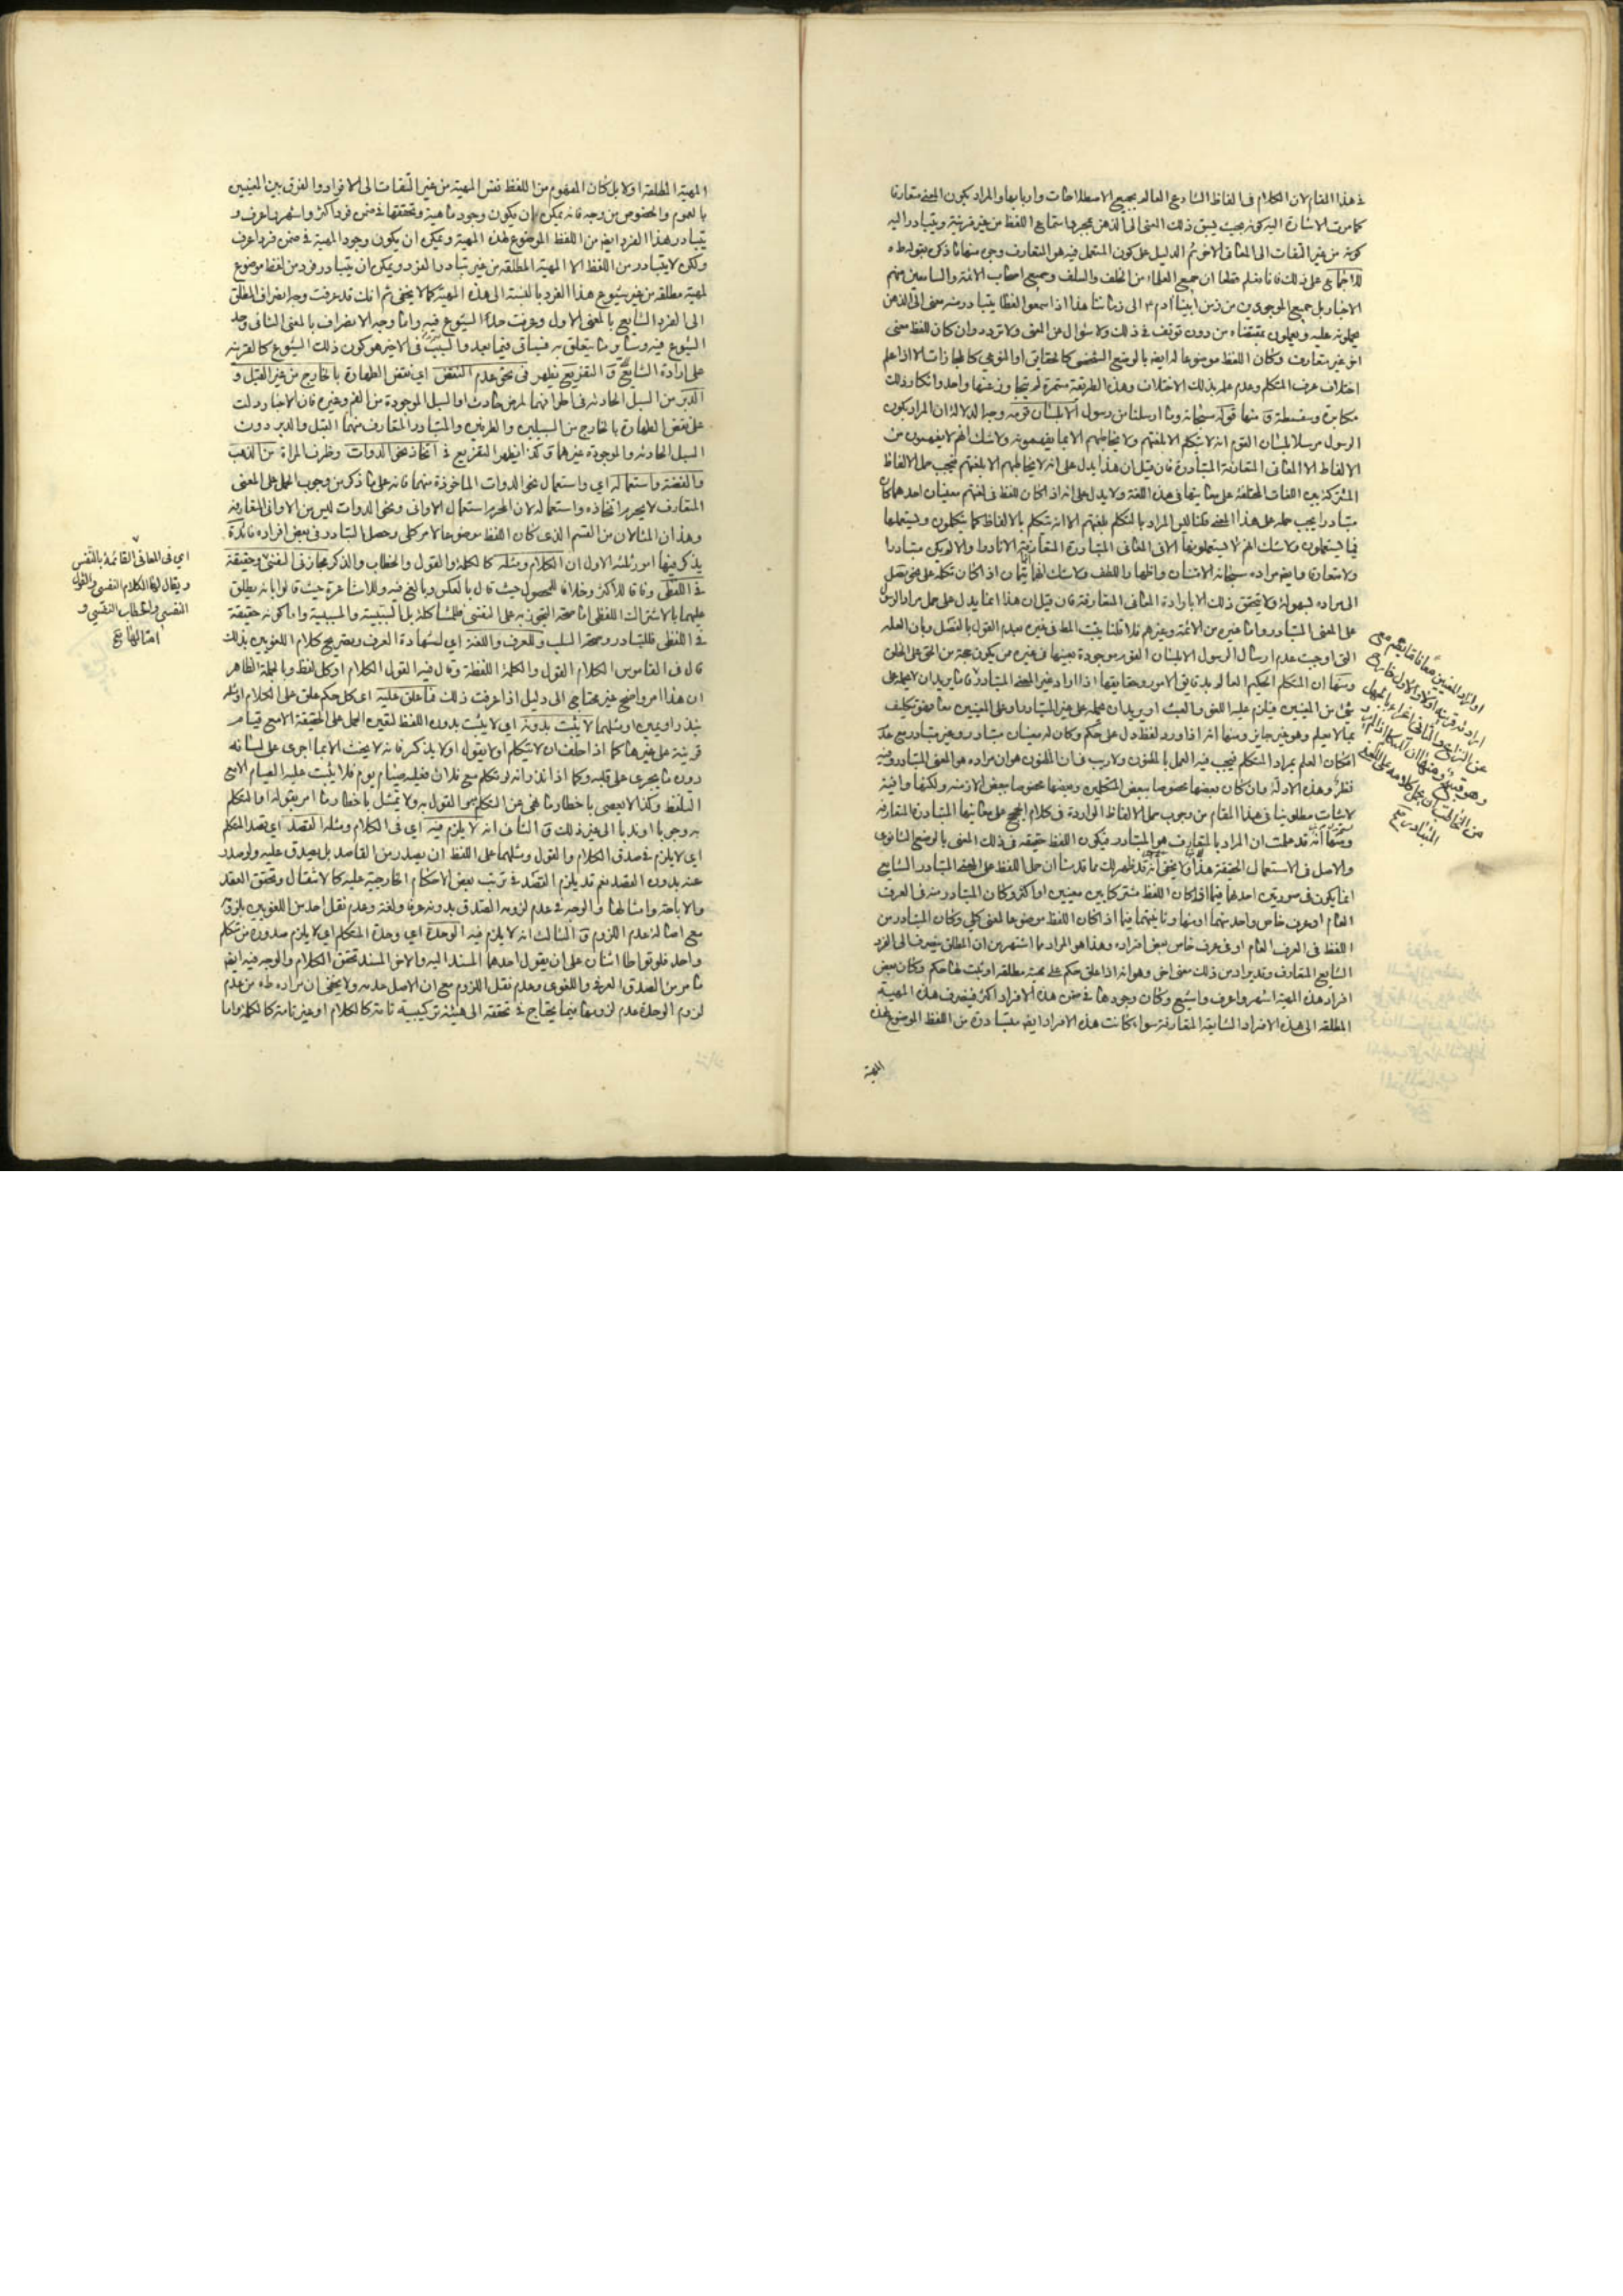 في هذا المقام لان الكلام في الفاظ الشارع العالم بجميع الاصطلاحات واربابها والمراد بكون المعنى متعارفا
كما مرت الاشارة اليه كونه بحيث يسبق ذلك المعنى الى الذهن بمجرد استماع اللفظ من غير قرينة ويتبادر اليه
كونه من غير التفات الى المعاني الاخر ثم الدليل على كون المستعمل فيه هو المتعارف وجوه منها ما ذكره بقوله طه
للاجماع على ذلك فانا نعلم قطعا ان جميع العلماء من الخلف والسلف وجميع اصحاب الائمة والسامعين منهم
الاخبار بل جميع الموجودين من زمن ابينا آدم الى زماننا هذا اذا سمعوا لفظا يتبادر منه معنى الى الذهن
يحملونه عليه ويعملون بمقتضاه من دون توقف في ذلك ولا سؤال عن المعنى ولا تردد وان كان للفظ معنى
اخر غير متعارف وكان اللفظ موضوعا له ايضا بالوضع الشخصي كالحقايق او النوعي كالمجازات الا اذا علم
اختلاف عرف المتكلم وعدم علمه بذلك الاختلاف وهذه الطريقة مستمرة لم يتجاوز عنها واحد وانكار ذلك
مكابرة وسفسطة ومنها قوله سبحانه وما ارسلنا من رسول الا بلسان قومه وجه الدلالة ان المراد بكون
الرسول مرسلا بلسان القوم انه لا يتكلم الا بلغتهم ولا يخاطبهم الا بما يفهمونه ولا شك انهم لا يفهمون من
الالفاظ الا المعاني المتعارفة المتبادرة فان قيل ان هذا يدل على انه لا يخاطبهم الا بلغتهم فيجب حمل الالفاظ
المشتركة بين اللغات المختلفة على معانيها في هذه اللغة ولا يدل على انه اذا كان للفظ في لغتهم معنيان احدهما كان
متبادرا يجب حمله على هذا المعنى قلنا ليس المراد بالتكلم بلغتهم الا انه يتكلم بالالفاظ كما يتكلمون ويستعملها
فيما يستعملون ولا شك انهم لا يستعملونها الا في المعاني المتبادرة المتعارفة الا نادرا والا لم يكن متبادرا
ولا متعارفا وايضا مراده سبحانه الامتنان واظهار اللطف ولا شك انهما يتمان اذا كان تكلمه على نحو ينتقل
الى مراده بسهولة ولا يتحقق ذلك الا بارادة المعاني المتعارفة فان قيل ان هذا انما يدل على حمل مراد الرسل
على المعنى المتبادر واما غيره من الائمة وغيرهم فلا قلنا يثبت المط في غيره بعدم القول بالفصل وبان العلة
التي اوجبت عدم ارسال الرسول الا بلسان القوم موجودة بعينها في غيره ممن يكون حجة من الحق على الخلق
ومنها ان المتكلم الحكيم العالم بدقايق الامور وحقايقها اذا اراد غير المعنى المتبادر فاما يريد ان لا يحمله على
شيء من المعنيين فيلزم عليه اللغو والعبث او يريد ان يحمله على غير المتبادر او على المعنيين معا فهو تكليف
بما لا يعلم وهو غير جايز ومنها انه اذا ورد لفظ دل على حكم وكان له معنيان متبادر وغير متبادر مع عدم
امكان العلم بمراد المتكلم فيجب فيه العمل بالمظنون ولا ريب في ان المظنون هو ان مراده هو المعنى المتبادر وفيه
نظر وهذه الادلة وان كان بعضها مخصوصا ببعض المتكلمين وبعضها مخصوصا ببعض الازمنة ولكنها وافية
لاثبات مطلوبنا في هذا المقام من وجوب حمل الالفاظ الواردة في كلام الحجج على معانيها المتبادرة المتعارفة
ومنها انه قد علمت ان المراد بالمتعارف هو المتبادر فيكون اللفظ حقيقة في ذلك المعنى بالوضع الثانوي
والاصل في الاستعمال الحقيقة هذا ولا يخفى انه قد ظهر لك مما قدمنا ان حمل اللفظ على المعنى المتبادر الشايع
انما يكون في صورتين احدهما فيما اذا كان اللفظ مشتركا بين معنيين او اكثر وكان المتبادر منه في العرف
العام او عرف خاص واحد منهما او منها وثانيتهما فيما اذا كان اللفظ موضوعا لمعنى كلي وكان المتبادر من
اللفظ في العرف العام او في عرف خاص بعض افراده وهذا هو المراد مما اشتهر من ان المطلق ينصرف الى الفرد
الشايع المتعارف وقد يراد من ذلك معنى اخر وهو انه اذا علق حكم على مهية مطلقة او ثبت لها حكم وكان بعض
افراد هذه المهية اشهر واعرف واشيع وكان وجودها في ضمن هذه الافراد اكثر فينصرف هذه المهية
المطلقة الى هذه الافراد الشايعة المتعارفة سواء كانت هذه الافراد ايضا متبادرة من اللفظ الموضوع لهذه
المهية
اولاراد المعنيين معا
ارادته قرينة اولا والاول خارج
عن النزاع والثاني اغراء بالجهل
وهو قبيح ومنها ان المتكلم اذا لم يرد
من المخاطب ان يحمل كلامه على اللفظ
المتبادر
المهية المطلقة اولا بل كان المفهوم من اللفظ نفس المهية من غير التفات الى الافراد والفرق بين المعنيين
بالعموم والخصوص من وجه فانه يمكن ان يكون وجود مهية وتحققها في ضمن فرد اكثر واشهر واعرف و
يتبادر هذا الفرد ايضا من اللفظ الموضوع لهذه المهية ويمكن ان يكون وجود المهية في ضمن فرد اعرف
ولكن لا يتبادر من اللفظ الا المهية المطلقة من غير تبادر الفرد ويمكن ان يتبادر فرد من لفظ موضوع
لمهية مطلقة من غير شيوع هذا الفرد بالنسبة الى هذه المهية كما لا يخفى ثم انك قد عرفت وجه انصراف المطلق
الى الفرد الشايع بالمعنى الاول وعرفت حد الشيوع فيه واما وجه الانصراف بالمعنى الثاني وحد
الشيوع فيه وساير ما يتعلق به فسياتي فيما بعد والسبب في الاخير هو كون ذلك الشيوع كالقرينة
على ارادة الشايع والتفريع يظهر في نحو عدم النقض اي نقض الطهارة بالخارج من غير القبل و
الدبر من السبل الحادثة في اطرافهما لمرض حادث او السبل الموجودة من الفم وغيره فان الاخبار دلت
على نقض الطهارة بالخارج من السبيلين والطرفين والمتبادر المتعارف منهما القبل والدبر دون
السبل الحادثة والموجودة غيرهما وكذا يظهر التفريع في اتخاذ نحو الدوات وظرف المراة من الذهب
والفضة واستعماله اي واستعمال نحو الدوات الماخوذة منهما فانه على ما ذكر من وجوب الحمل على المعنى
المتعارف لا يحرم اتخاذه واستعماله لان المحرم استعمال الاواني ونحو الدوات ليس من الاواني المتعارفة
وهذان المثالان من القسم الذي كان اللفظ موضوعا لامر كلي وحصل التبادر في بعض افراده فائدة
يذكر فيها امور ثلثة الاول ان الكلام ومثله كالكلمة والقول والخطاب والذكر مجاز في النفسي وحقيقة
في اللفظي وفاقا للاكثر وخلافا للمحصول حيث قال بالعكس وبالنحو فيه وللاشاعرة حيث قالوا بانه يطلق
عليهما بالاشتراك اللفظي اما صحة التجوز به على النفسي فللمشاكلة بل بالسببية والمسببية واما كونه حقيقة
في اللفظي فللتبادر وصحة السلب وللعرف واللغة اي لشهادة العرف وتصريح كلام اللغويين بذلك
قال في القاموس الكلام القول والكلمة اللفظة وقال فيه القول الكلام او كل لفظ وبالجملة الظاهر
ان هذا امر واضح غير محتاج الى دليل اذا عرفت ذلك فما علق عليه اي كل حكم علق على الكلام او مثله
بنذر او يمين او مثلهما لا يثبت بدونه اي لا يثبت بدون اللفظ لتعين الحمل على الحقيقة الا مع قيام
قرينة على غيرها كما اذا حلف ان لا يتكلم او لا يقول او لا يذكر فانه لا يحنث الا بما اجرى على لسانه
دون ما يجري على قلبه وكما اذا نذر انه لو تكلم مع فلان فعليه صيام يوم فلا يثبت عليه الصيام الا مع
التلفظ وكذا لا يعصي باخطار ما نهي عن التكلم به او القول به ولا يمتثل باخطار ما امر بقوله او التكلم
به وجوبا او ندبا الى غير ذلك والثاني انه لا يلزم فيه اي في الكلام ومثله القصد اي قصد المتكلم
اي لا يلزم في صدق الكلام والقول ومثلهما على اللفظ ان يصدر من القاصد بل يصدق عليه ولو صدر
عنه بدون القصد نعم قد يلزم القصد في ترتب بعض الاحكام الخارجية عليه كالامتثال وتحقق العقد
والاباحة وامثالها والوجه في عدم لزومه الصدق بدونه عرفا ولغة وعدم نقل احد من اللغويين لزومه
مع اصالة عدم اللزوم والثالث انه لا يلزم فيه الوحدة اي وحدة المتكلم اي لا يلزم صدوره من متكلم
واحد فلو تواطا اثنان على ان يقول احدهما المسند اليه والاخر المسند تحقق الكلام والوجه فيه ايضا
ما مر من الصدق العرفي واللغوي وعدم نقل اللزوم مع ان الاصل عدمه ولا يخفى ان مراده طه من عدم
لزوم الوحدة عدم لزومها فيما يحتاج في تحققه الى هيئة تركيبية تامة كالكلام او غير تامة كالكلمة واما
اي في المعاني القائمة بالنفس
ويقال لها الكلام النفسي والقول
النفسي والخطاب النفسي و
امثالها